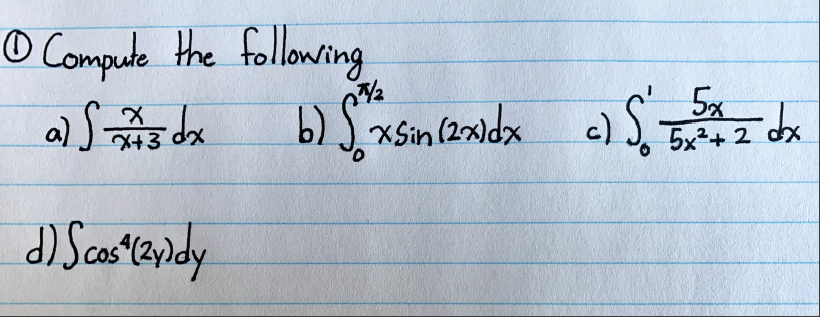 ① Compute the following
a) ∫ x/(x+3) dx b) ∫₀^(π/2) x sin(2x) dx c) ∫₀^1 5x/(5x²+2) dx
d) ∫ cos⁴(2y) dy